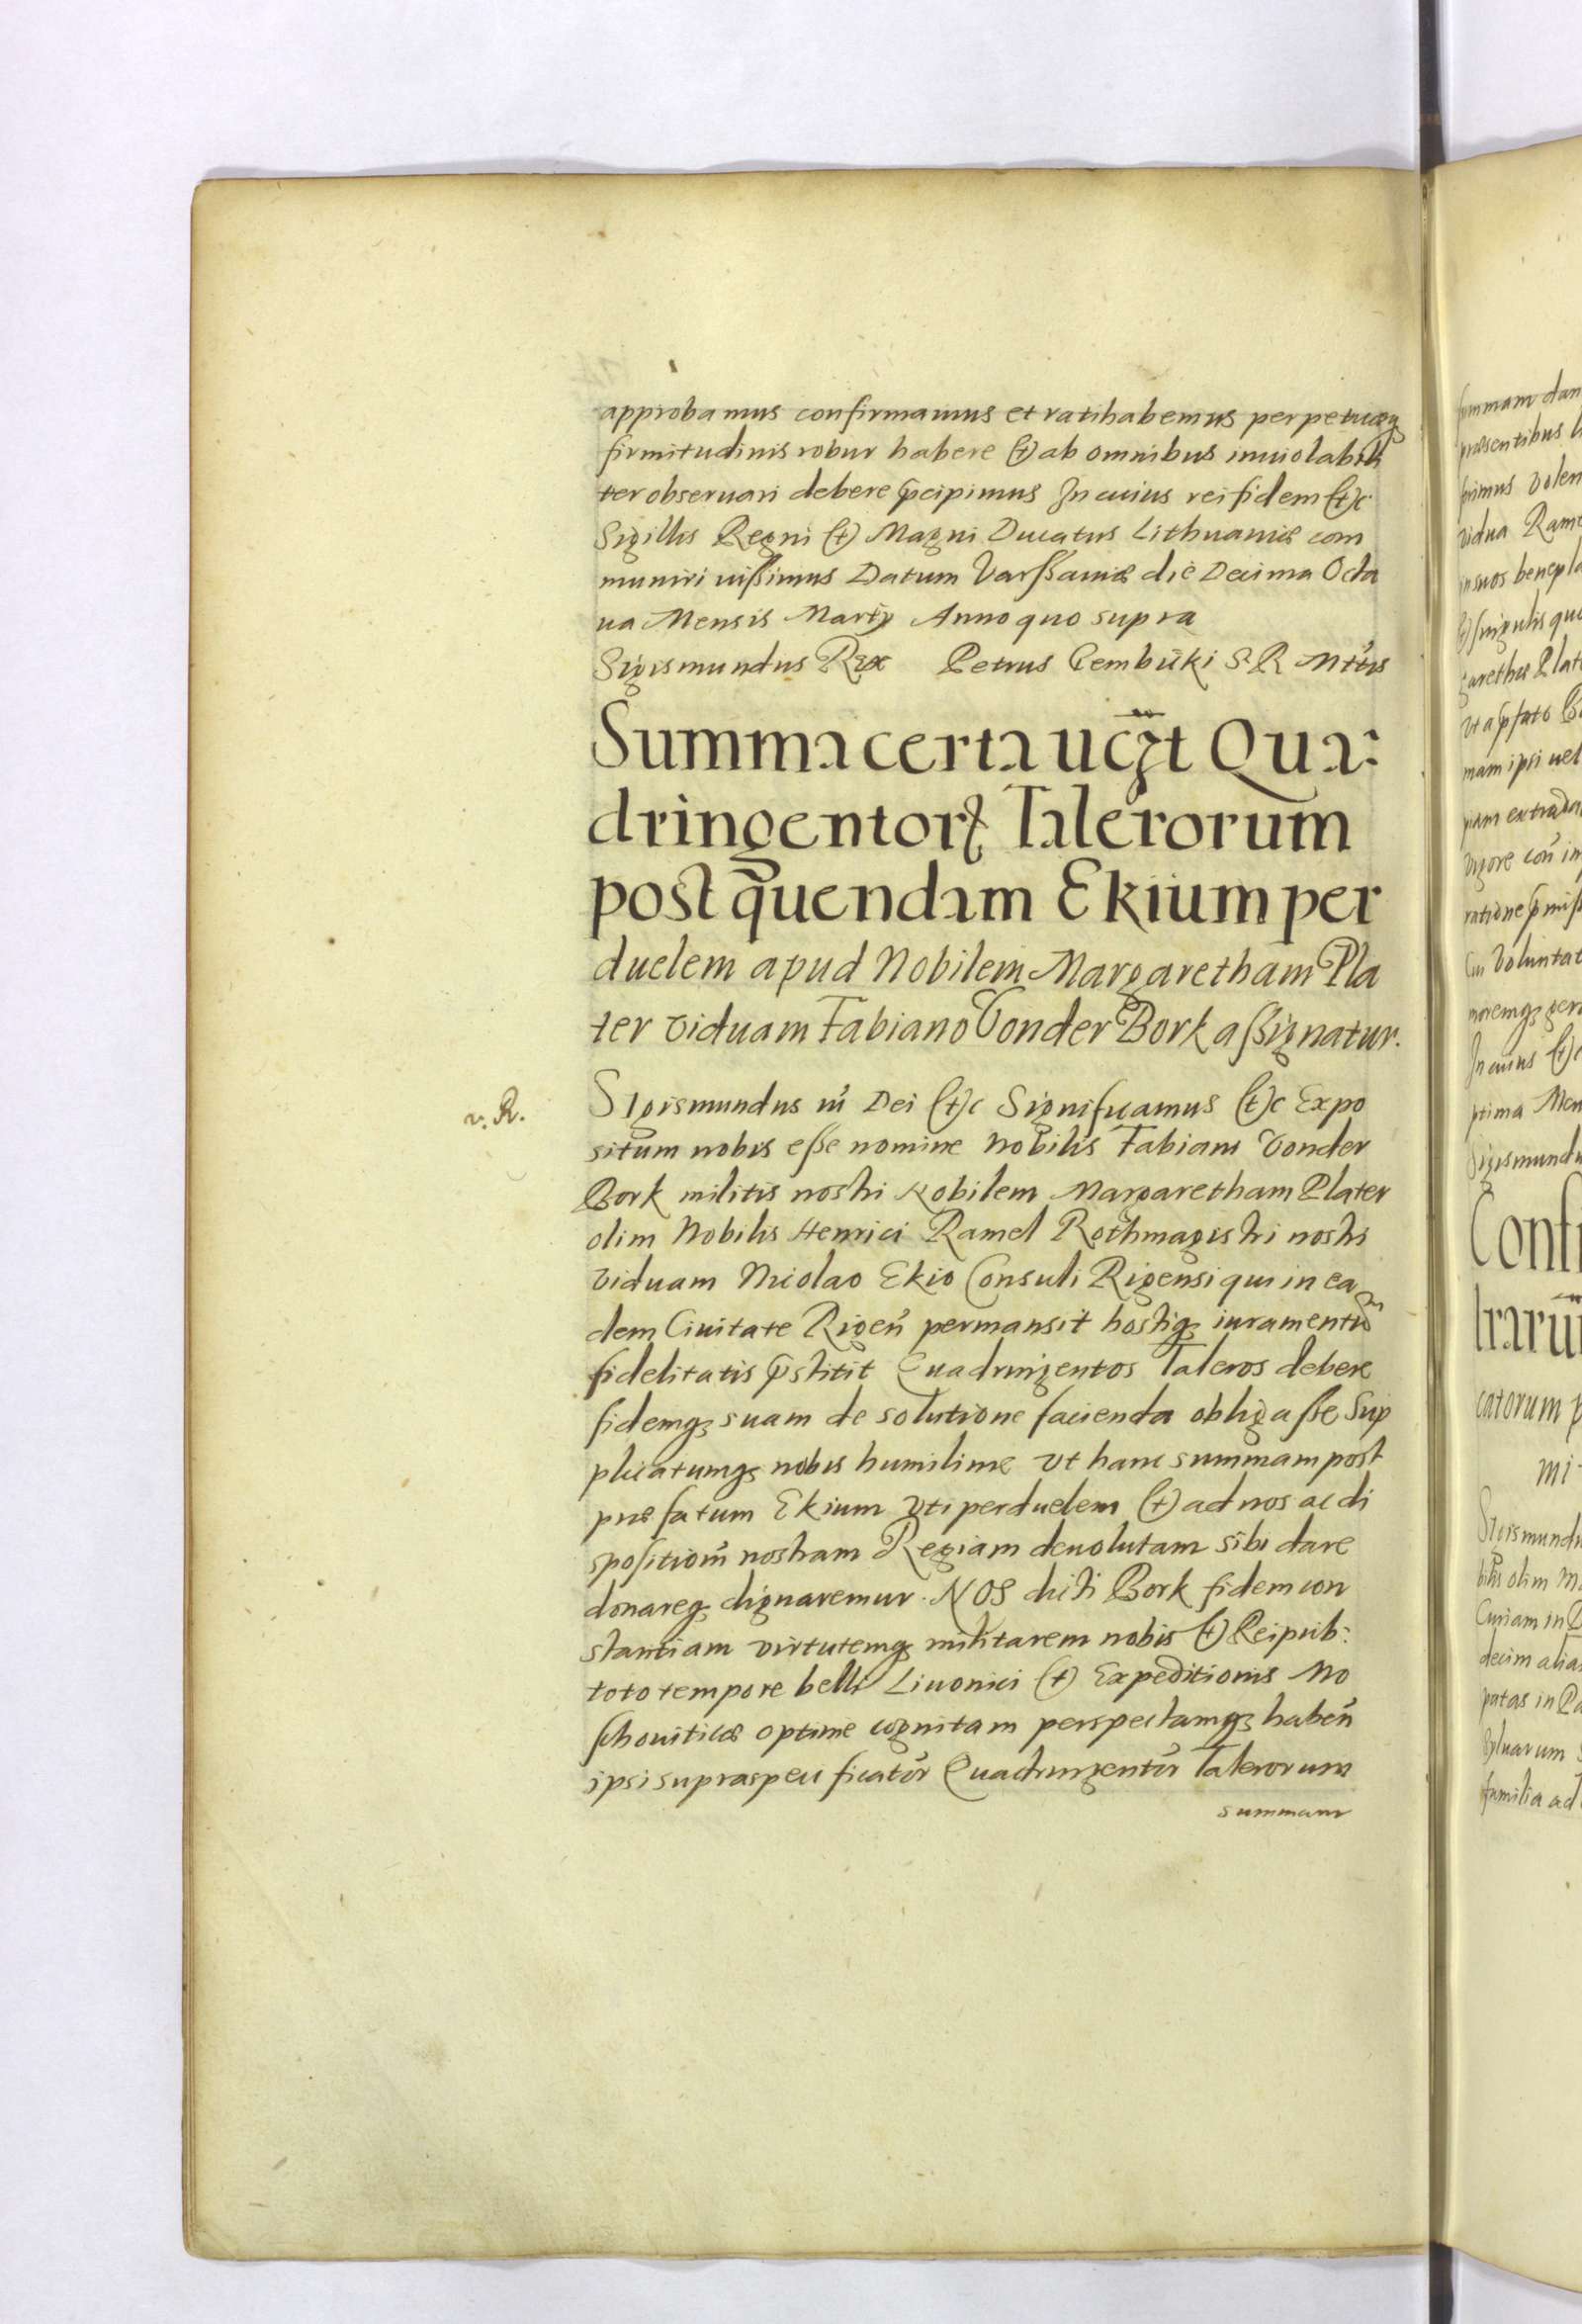 approbamus confirmamus et ratihabemus perpetuæq
firmitudinis robur habere (et) ab omnibus inuiolabili
ter obseruari debere p̃cipimus In cuius rei fidem (et)c
Sigillis Regni (et) Magni Ducatus Lithuaniæ com
muniri iußimus Datum Varssauiæ die Decima Octa
ua Mensis Martij Anno quo supra
Sigismundus Rex Petrus S R Mtis
Summa certa ucꝫt Qua:
dringentorꝝ Talerorum
post quendam Ekium per
duelem apud Nobilem Margaretham Pla
ter viduam Fabiano Vonder Bork aßignatur.
v. R.
Sigismundus iii Dei (et)c Significamus (et)c Expo
situm nobis eße nomine Nobilis Fabiani Vonder
Bork militis nostri Nobilem Margaretham Plater
olim Nobilis Henrici Ramel Rothmagistri nostri
viduam Nicolao Ekio Consuli Rigensi qui in ea
dem Ciuitate Rigeñ permansit hostiqꝫ iuramentum
fidelitatis p̃stitit Quadringentos Taleros debere
fidemqꝫ suam de solutione facienda obligaße Sup
plicatumqꝫ nobis humilime vt hanc summam post
præfatum Ekium vti perduelem (et) ad nos ac di
spositioñ nostram Regiam deuolutam sibi dare
donareqꝫ dignaremur. NOS dicti Bork fidem con
stantiam virtutemqꝫ militarem nobis (et) Reipub:
toto tempore belli Liuonici (et) Expeditionis Mo
schouiticæ optime cognitam perspectamqꝫ habeñ
ipsi supraspecificator̃ Quadringentor̃ Talerorum
summam